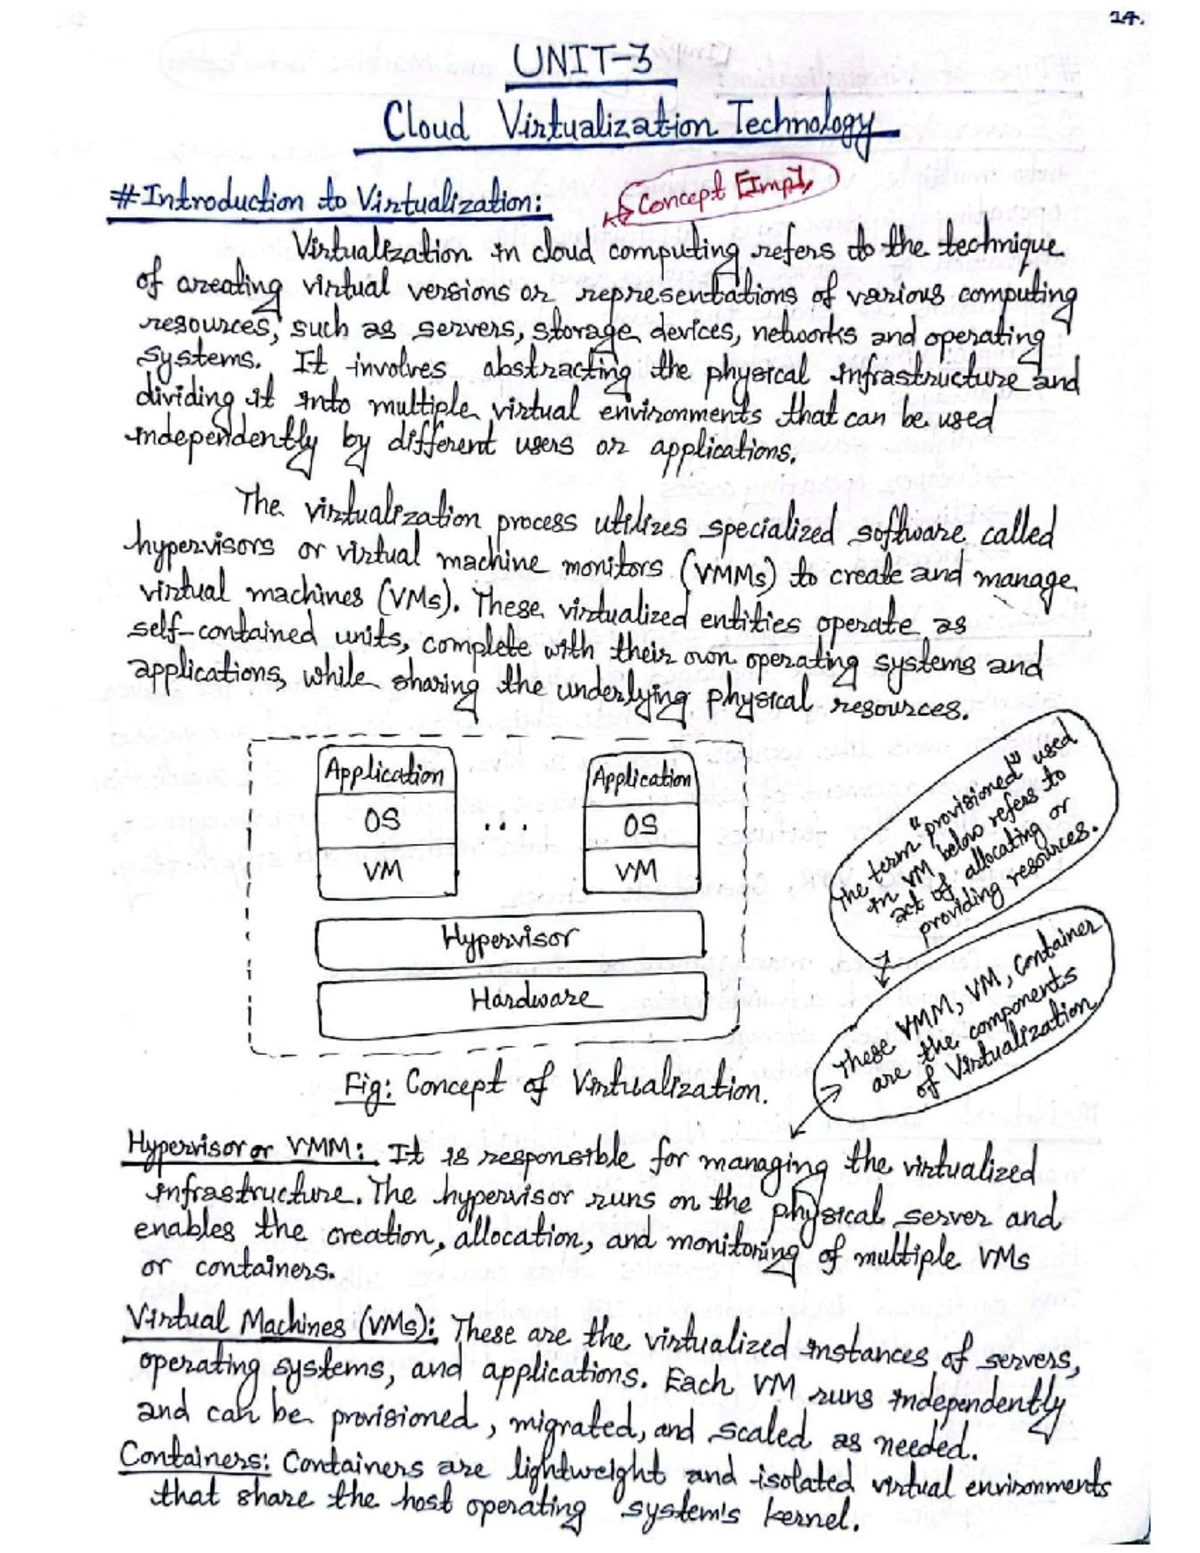 24.
UNIT-3
Cloud Virtualization Technology
#Introduction to Virtualization:
Concept [Imp],
Virtualization in cloud computing refers to the technique
of creating virtual versions or representations of various computing
resources, such as servers, storage, devices, networks and operating
systems. It involves abstracting the physical infrastructure and
dividing it into multiple virtual environments that can be used
independently by different users or applications.
The virtualization process utilizes specialized software called
hypervisors or virtual machine monitors (VMMs) to create and manage
virtual machines (VMs). These virtualized entities operate as
self-contained units, complete with their own operating systems and
applications, while sharing the underlying physical resources.
Application
OS
VM
...
Application
OS
VM
Hypervisor
Hardware
Fig: Concept of Virtualization.
The term "provisioned" used
in VM below refers to
act of allocating or
providing resources.
These VMM, VM, container
are the components
of Virtualization
Hypervisor or VMM: It is responsible for managing the virtualized
infrastructure. The hypervisor runs on the physical server and
enables the creation, allocation, and monitoring of multiple VMs
or containers.
Virtual Machines (VMs): These are the virtualized instances of servers,
operating systems, and applications. Each VM runs independently
and can be provisioned, migrated, and scaled as needed.
Containers: Containers are lightweight and isolated virtual environments
that share the host operating system's kernel.